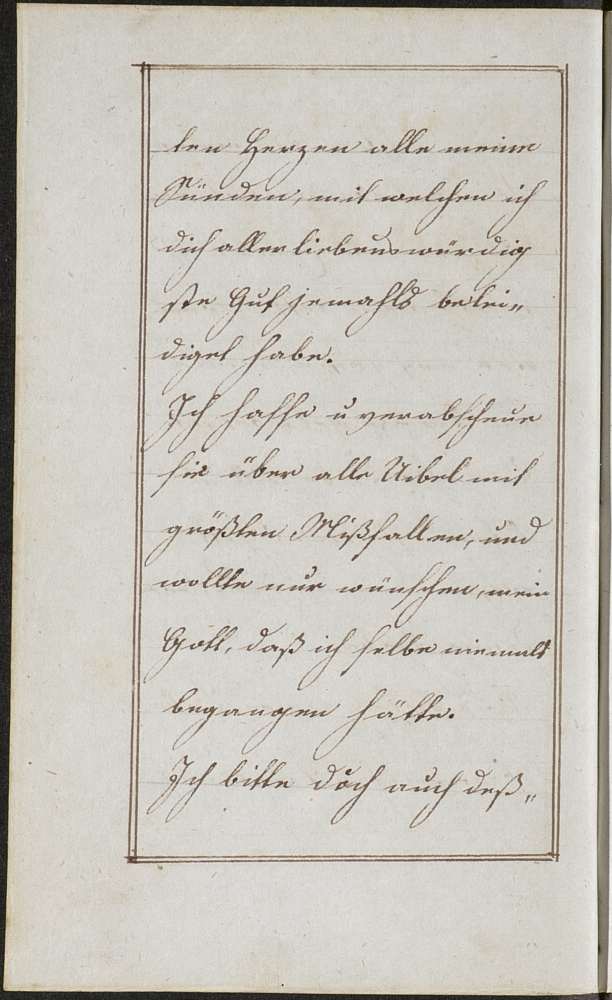 len Herzen alle meine
Sünden, mit welchen ich
dich allerliebenswürdig
ste Gut jemahls belei„
diget habe.
Ich hasse u verabscheue
sie über alle Uibel mit
größten Mißfallen, und
wollte nur wünschen, mein
Gott, daß ich selbe niemals
begangen hätte.
Ich bitte doch auch deß„